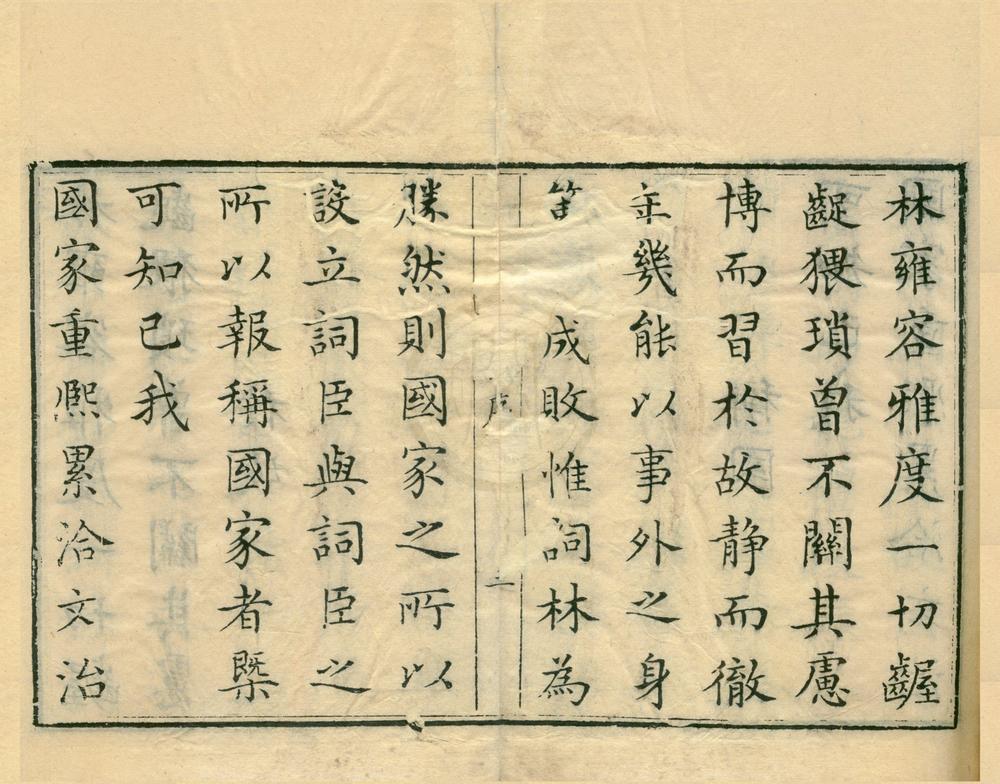 林雍容雅度一切齷
齪猥瑣曾不關其慮
博而習於故静而徹
幾能以事外之身
成敗惟詞林為
序
二
勝然則國家之所以
設立詞臣與詞臣之
所以報稱國家者槩
可知已我
國家重熈累洽文治